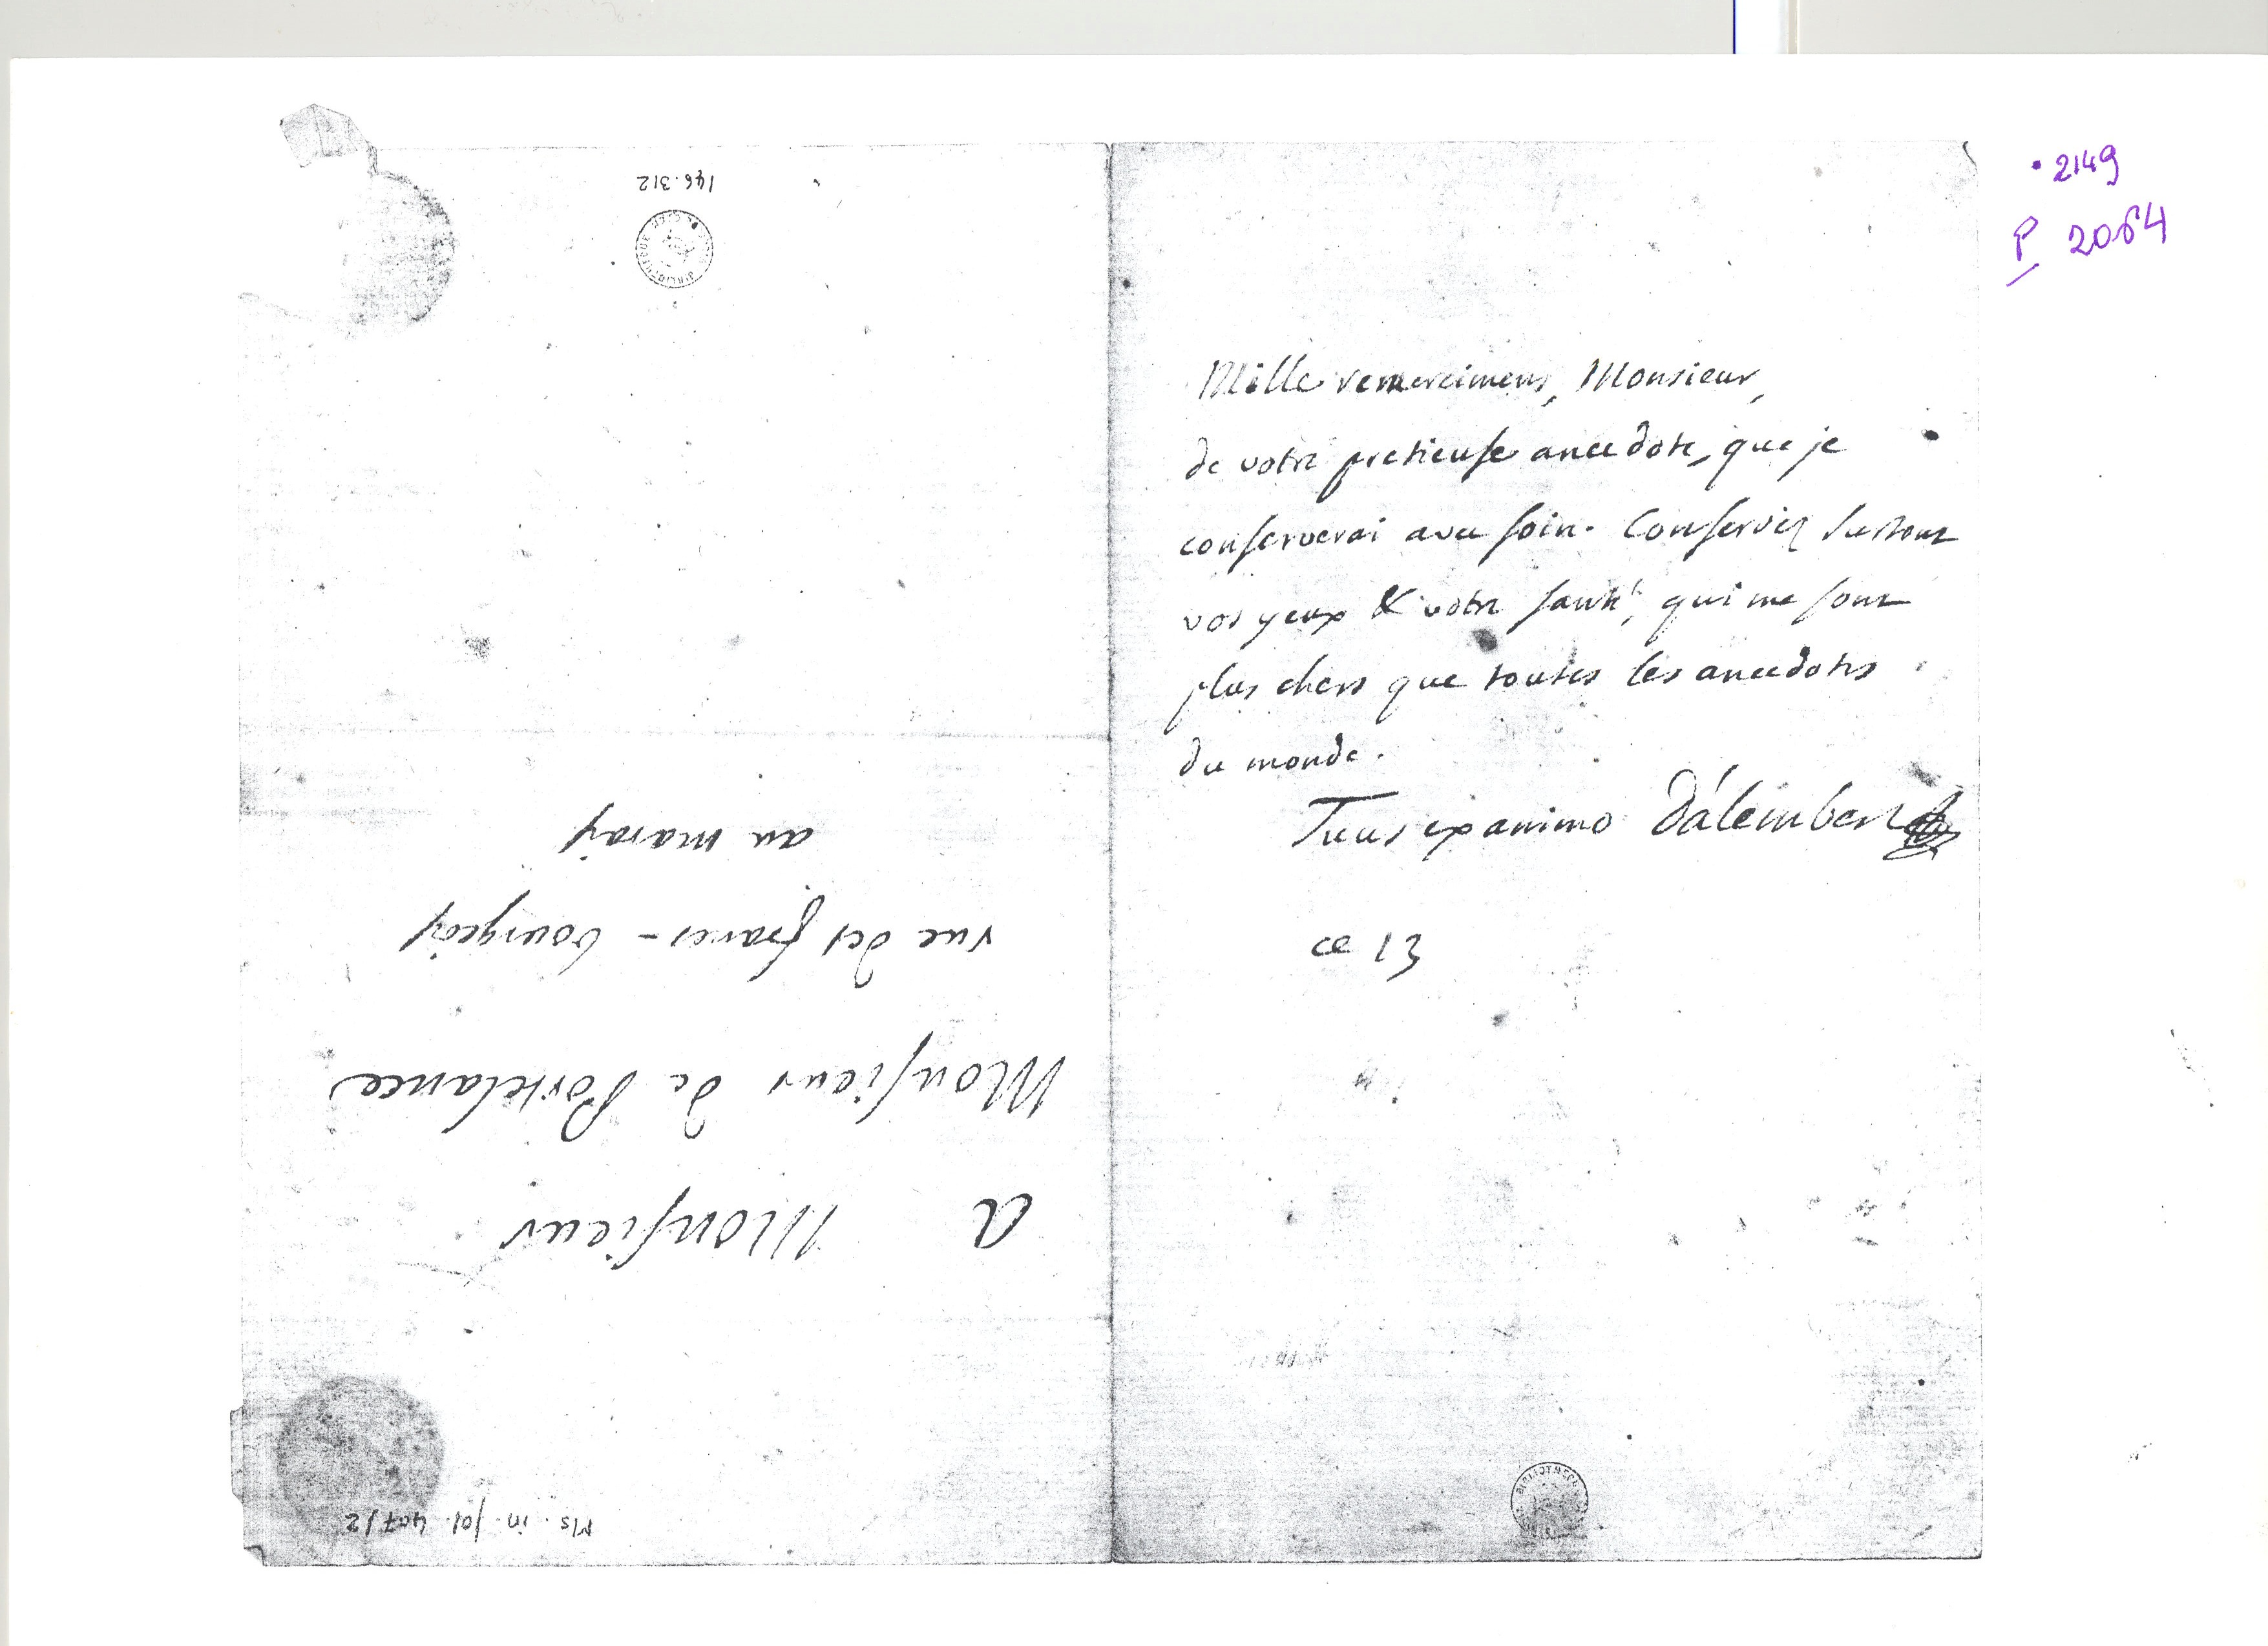 • 2149
P 2064
Mille remercimens, Monsieur,
de votre pretieuse anecdote, que je
conserverai avec soin. Conservez surtout
vos yeux & votre santé, qui me sont
plus chers que toutes les anecdotes
du monde.
Tuus ex animo D'alembert
ce 13
BIBLIOTHECA
A Monsieur
Monsieur de Portelance
rue des francs-bourgeois
au marais
146.312
Ms. in fol. 407/2